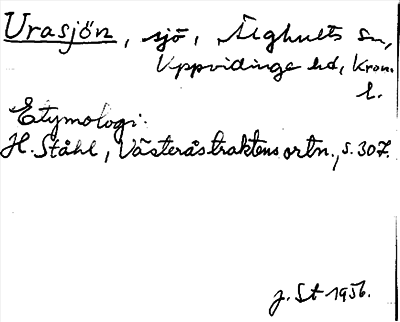 Urasjön, sjö, Älghults sn,
Uppvidinge hd, Kron.
l.
Etymologi:
H. Ståhl, Västeråstraktens ortn., s. 307.
J. St 1956.